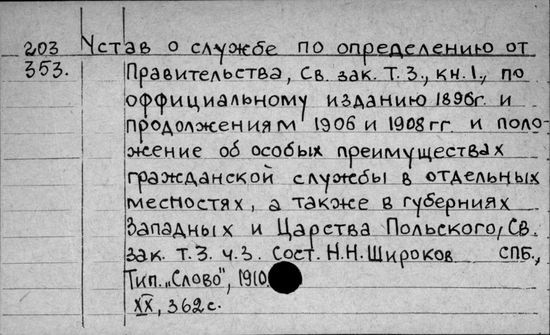 203 Устав о службе по определению от
353. Правительства, Св. зак. Т. 3., кн. I., по
оффициальному изданию 1896г. и
продолжениям 1906 и 1908 гг. и поло-
жение об особых преимуществах
гражданской службы в отдельных
местностях, а также в губерниях
Западных и Царства Польского, Св.
зак. т. 3. ч. 3. Сост. Н.Н. Широков СПБ.,
Тип. „Слово", 1910.
XX, 362 с.